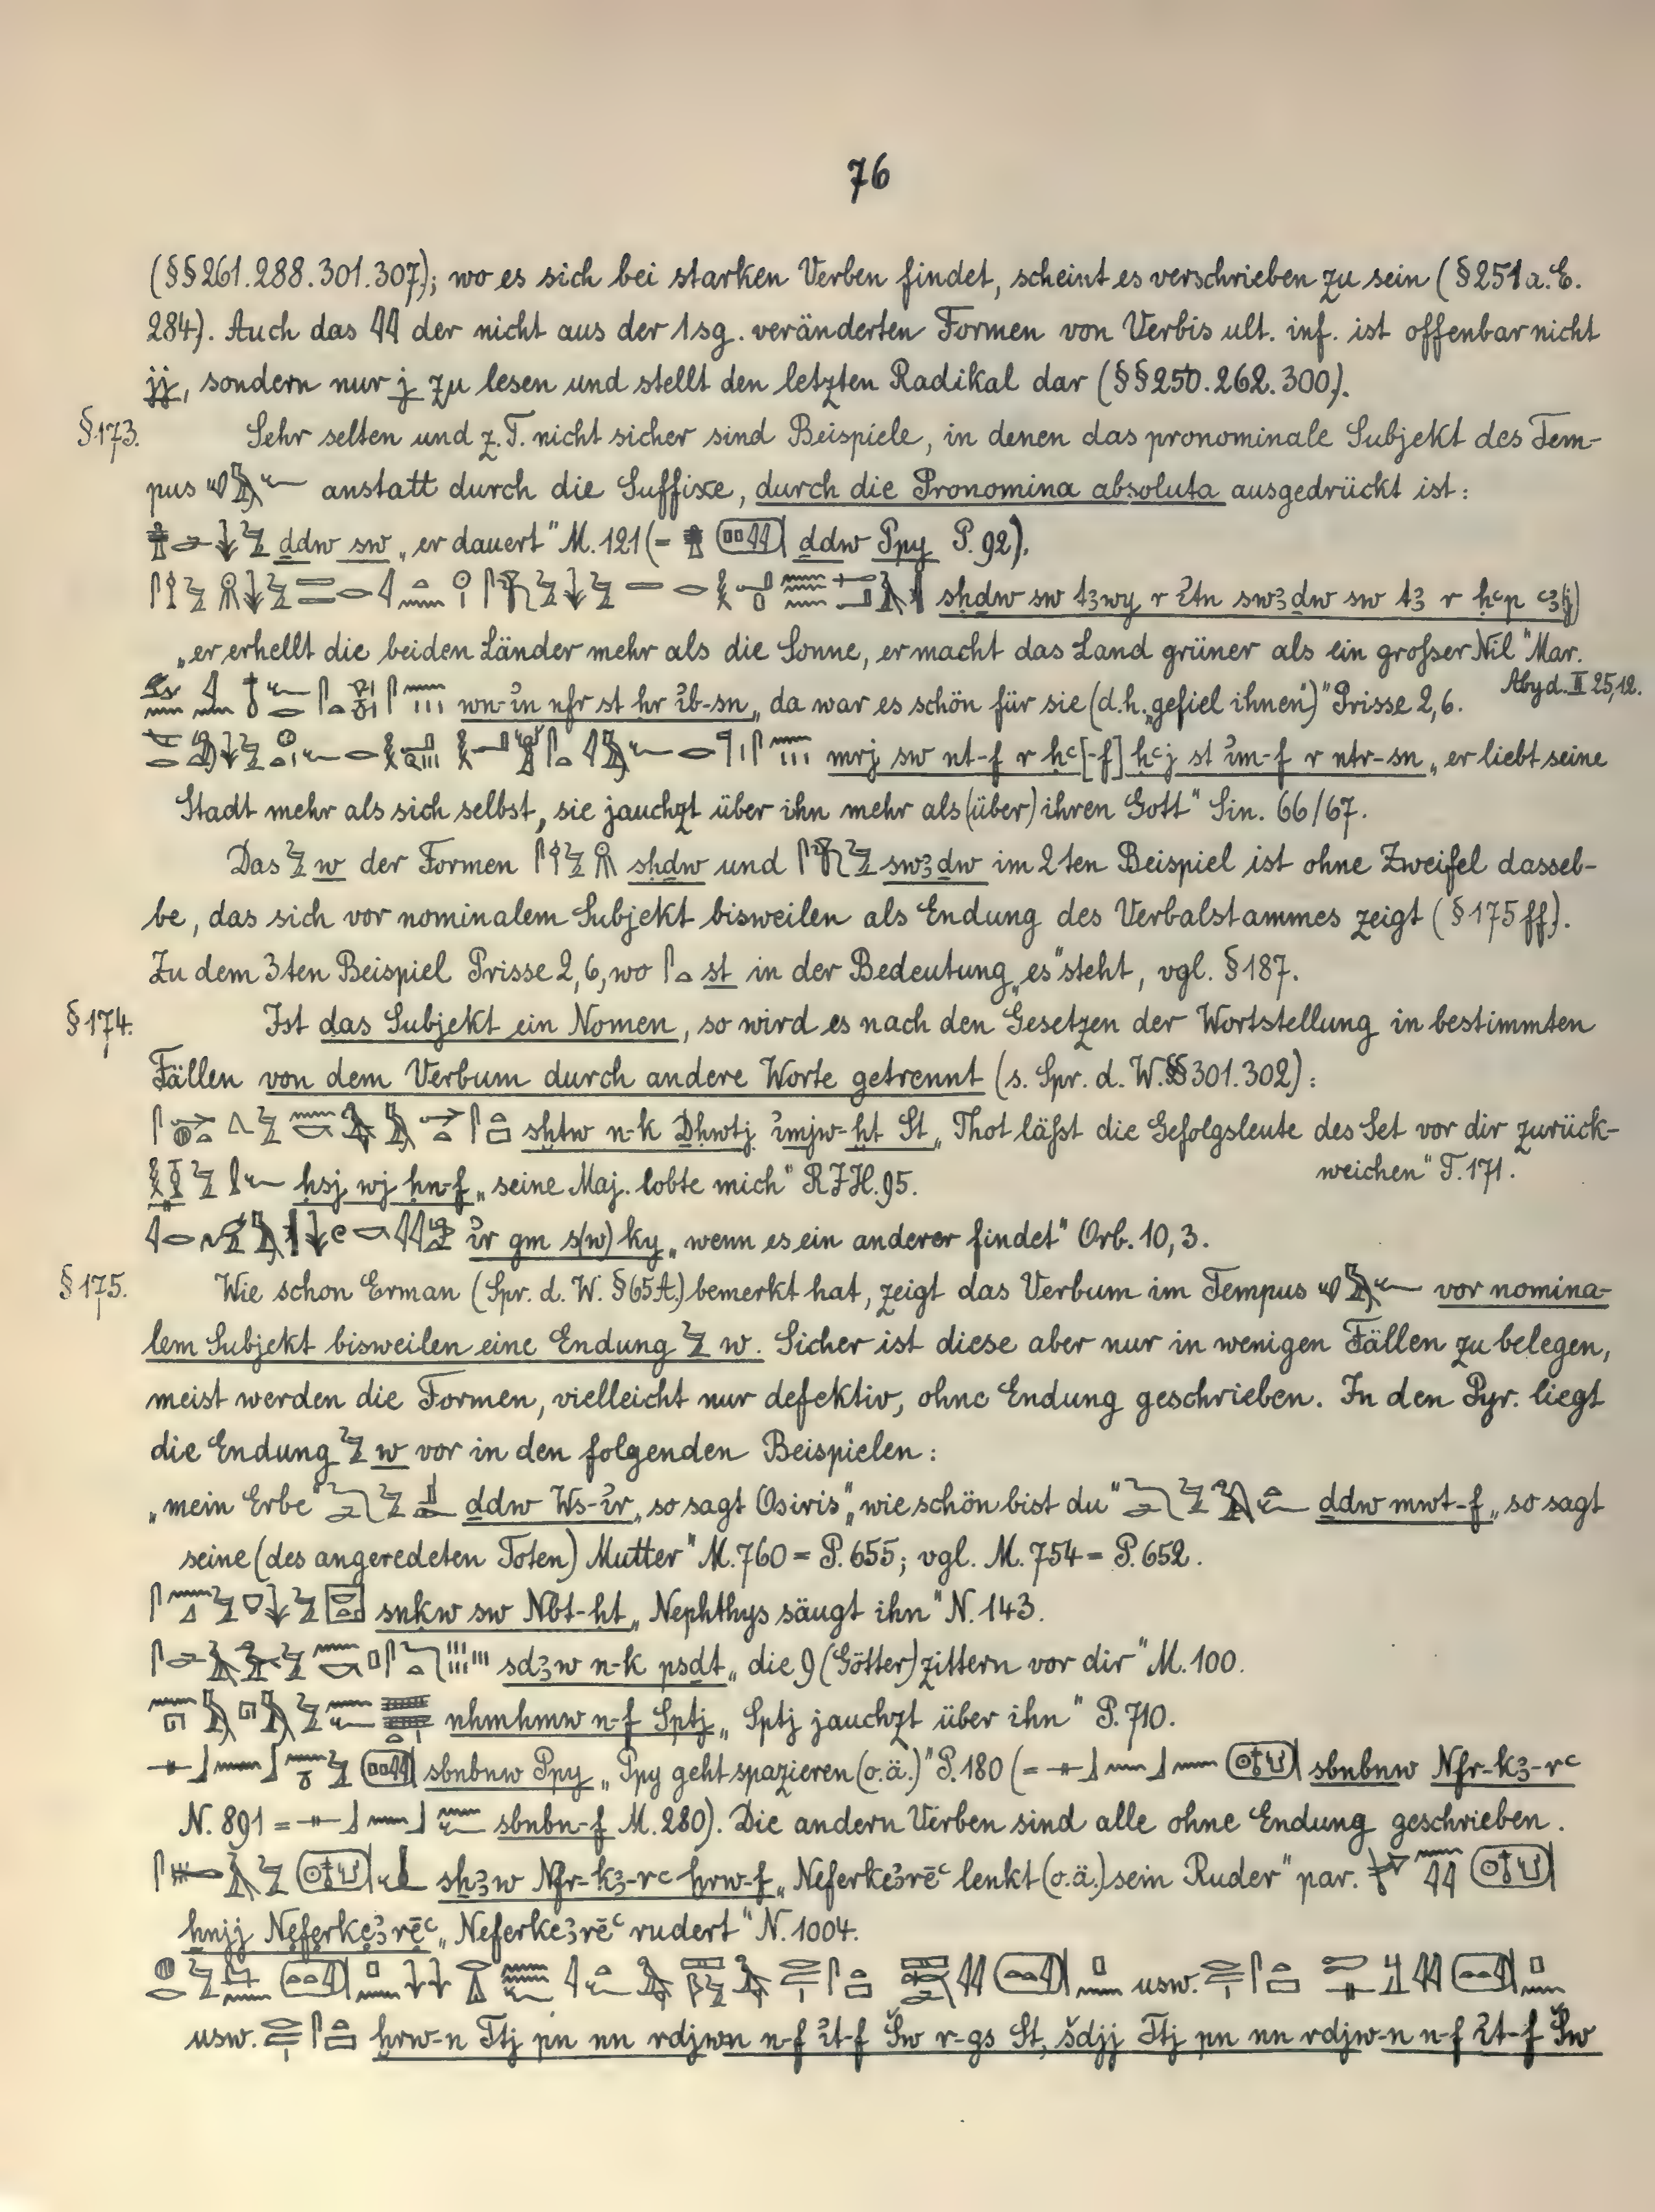 76
(§§261.288.301.307); wo es sich bei starken Verben findet, scheint es verschrieben zu sein (§251a.E.
284). Auch das 𓇋𓇋 der nicht aus der 1sg. veränderten Formen von Verbis ult. inf. ist offenbar nicht
jj, sondern nur j zu lesen und stellt den letzten Radikal dar (§§250.262.300).
§173. Sehr selten und z.T. nicht sicher sind Beispiele, in denen das pronominale Subjekt des Tem-
pus anstatt durch die Suffixe, durch die Pronomina absoluta ausgedrückt ist:
ḏdw sw „er dauert" M.121 (= ḏdw Ppy P.92).
sḥḏw sw tꜣwy r ỉtn swꜣḏw sw tꜣ r ḥꜥp ꜥꜣ(j)
„er erhellt die beiden Länder mehr als die Sonne, er macht das Land grüner als ein großer Nil" Mar.
Abyd. II 25,12.
wn-ỉn nfr st ḥr ỉb-sn „da war es schön für sie (d.h. „gefiel ihnen")" Prisse 2,6.
mrj sw nt-f r ḥꜥ[-f] ḥꜥj st ỉm-f r nṯr-sn „er liebt seine
Stadt mehr als sich selbst, sie jauchzt über ihn mehr als (über) ihren Gott" Sin. 66/67.
Das 𓅱 w der Formen sḥḏw und swꜣḏw im 2ten Beispiel ist ohne Zweifel dassel-
be, das sich vor nominalem Subjekt bisweilen als Endung des Verbalstammes zeigt (§175ff).
Zu dem 3ten Beispiel Prisse 2,6, wo 𓋴𓏏 st in der Bedeutung „es" steht, vgl. §187.
§174. Ist das Subjekt ein Nomen, so wird es nach den Gesetzen der Wortstellung in bestimmten
Fällen von dem Verbum durch andere Worte getrennt (s. Spr. d. W. §§301.302):
sḫtw n-k Ḏḥwtj ỉmjw-ḫt St „Thot läßt die Gefolgsleute des Set vor dir zurück-
weichen" T.171.
ḥsj wj ḥn-f „seine Maj. lobte mich" RJH.95.
ỉr gm s(w) ky „wenn es ein anderer findet" Orb. 10,3.
§175. Wie schon Erman (Spr. d. W. §65A.) bemerkt hat, zeigt das Verbum im Tempus vor nomina-
lem Subjekt bisweilen eine Endung 𓅱 w. Sicher ist diese aber nur in wenigen Fällen zu belegen,
meist werden die Formen, vielleicht nur defektiv, ohne Endung geschrieben. In den Pyr. liegt
die Endung 𓅱 w vor in den folgenden Beispielen:
„mein Erbe" ḏdw Ws-ỉr „so sagt Osiris", „wie schön bist du" ḏdw mwt-f „so sagt
seine (des angeredeten Toten) Mutter" M.760 = P.655; vgl. M.754 = P.652.
snkw sw Nbt-ḥt „Nephthys säugt ihn" N.143.
sdꜣw n-k psḏt „die 9 (Götter) zittern vor dir" M.100.
nhmhmw n-f Sptj „Sptj jauchzt über ihn" P.710.
sbnbnw Ppy „Ppy geht spazieren (o.ä.)" P.180 (= sbnbnw Nfr-kꜣ-rꜥ
N.891 = sbnbn-f M.280). Die andern Verben sind alle ohne Endung geschrieben.
sḫꜣw Nfr-kꜣ-rꜥ ḥrw-f „Neferkeꜣrēꜥ lenkt (o.ä.) sein Ruder" par.
ḫnjj Neferkeꜣrēꜥ „Neferkeꜣrēꜥ rudert" N.1004.
usw.
usw. ḫrw-n Ttj pn nn rdjwn n-f ỉt-f Šw r-gs St, šdjj Ttj pn nn rdjw-n n-f ỉt-f Šw